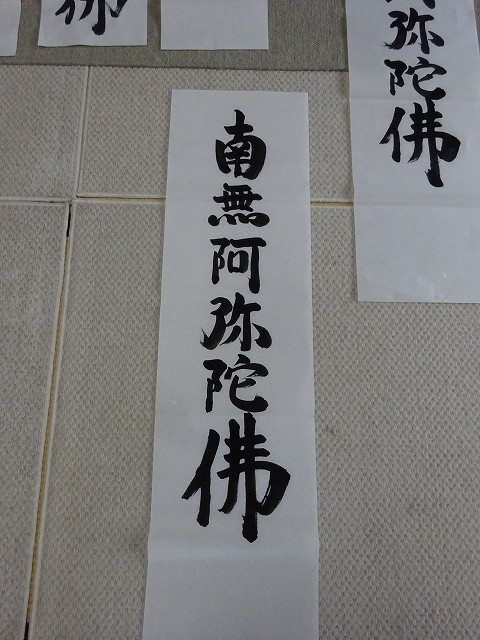 南無阿弥陀佛
弥陀佛
佛